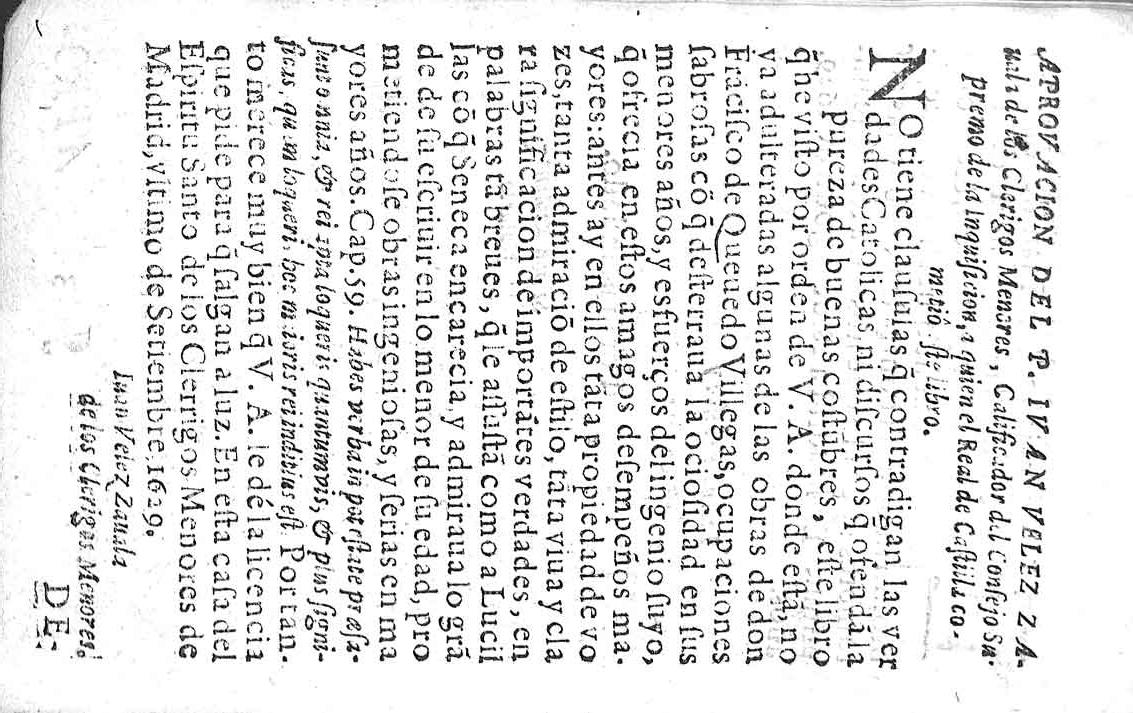 APROVACION DEL P. IVAN VELEZ ZA-
uala de los Clerigos Menores, Calificador del Consejo Su-
premo de la Inquisicion, a quien el Real de Castilla co-
metió este libro.
No tiene clausulas q̃ contradigan las ver
dades Catolicas, ni discursos q̃ ofendã la
pureza de buenas costũbres, este libro
q̃ he visto por orden de V. A. donde està, no
ya adulteradas algunas de las obras de don
Frãcisco de Queuedo Villegas, ocupaciones
sabrosas cõ q̃ desterraua la ociosidad en sus
menores años, y esfuerços del ingenio suyo,
q̃ ofrecia en estos amagos desempeños ma-
yores: antes ay en ellos tãta propiedad de vo
zes, tanta admiraciõ de estilo, tãta viua y cla
ra significacion de importãtes verdades, en
palabras tã breues, q̃ le assustã como a Lucil
las cõ q̃ Seneca encarecia, y admiraua lo grã
de de su escriuir en lo menor de su edad, pro
metiendose obras ingeniosas, y serias en ma
yores años. Cap. 59. Habes verba in potestate præsa-
sunt omnia, & rei apta loqueris quantum vis, & plus signi-
ficas quàm loqueris hoc maioris rei indicium est. Por tan-
to merece muy bien q̃ V. A. le dé la licencia
que pide para q̃ salgan a luz. En esta casa del
Espiritu Santo de los Clerrigos Menores de
Madrid, vltimo de Setiembre, 1629.
Iuan Velez Zauala
de los Cherigos Menores.
DE